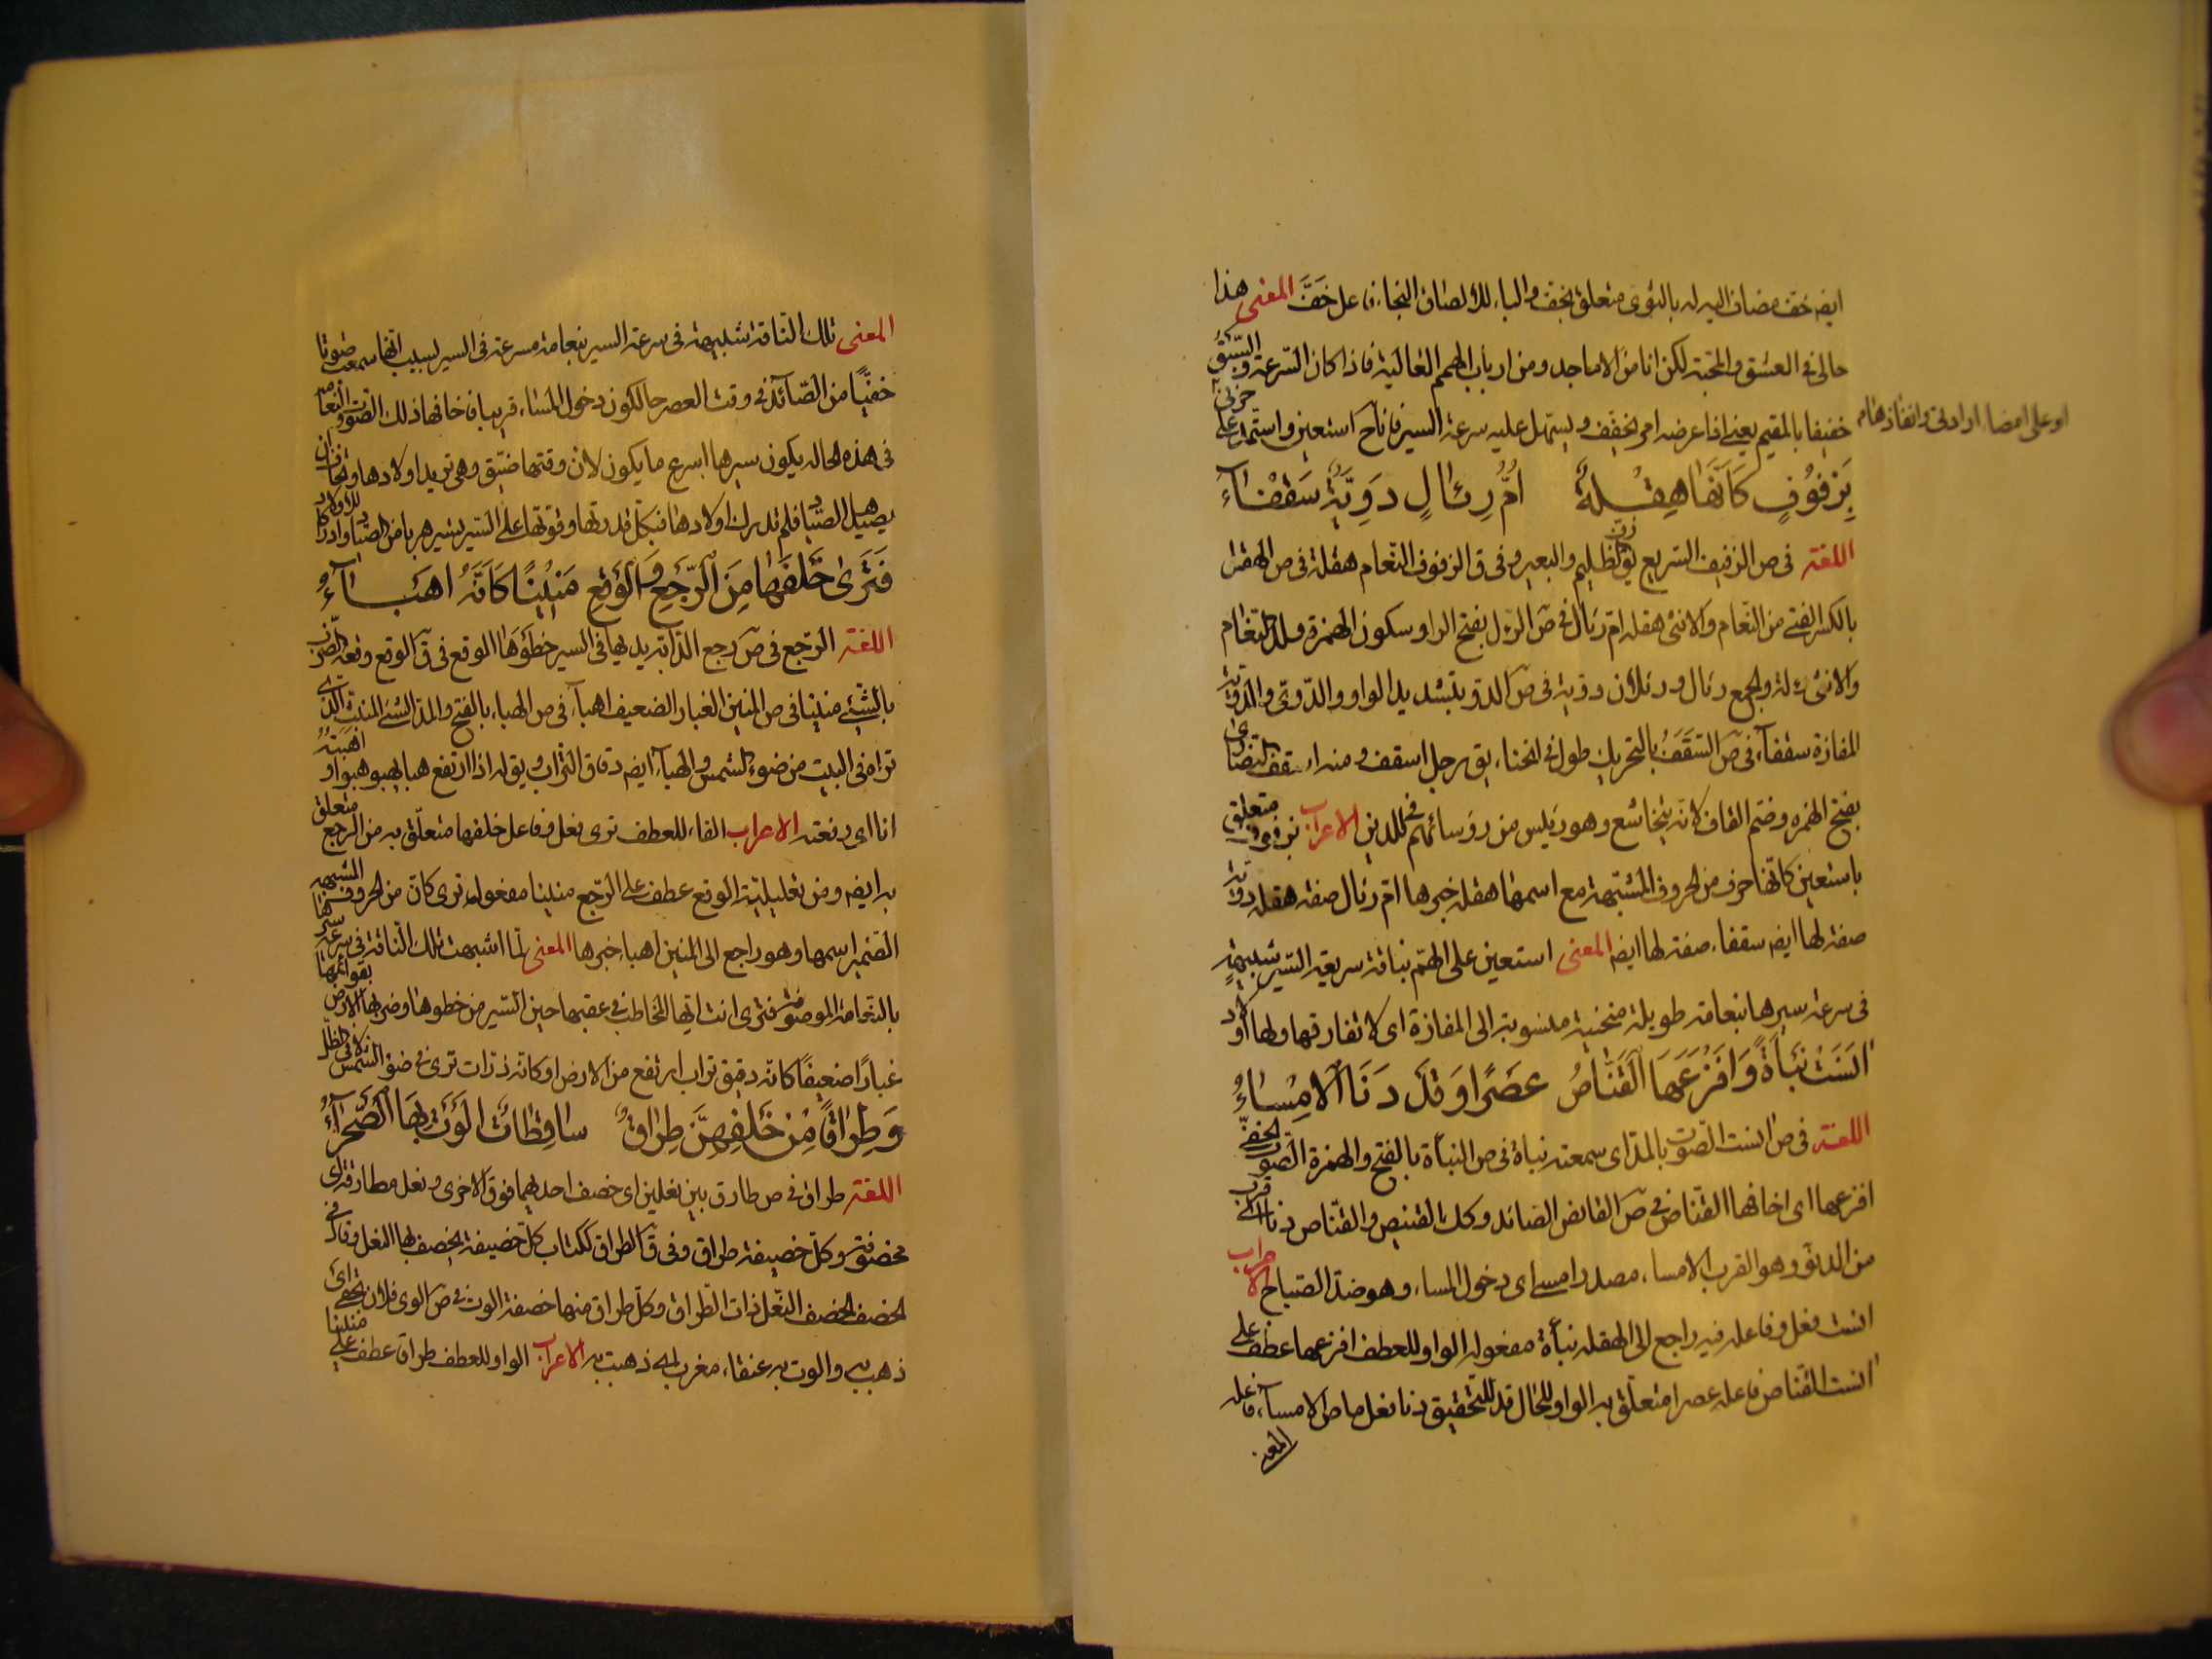 ايضه خف مضاف اليه له بالثوى متعلق بخف والباء للالصاق النجاء فاعل خفّ المعنى هذا
حالى فى العشق والمحبة لكن انا من الاماجد ومن ارباب الهمم العالية فاذا كان السرعة والسبق
خفيفا بالمقيم يعنى اذا عرضه امر يخفف ويستهل عليه سرعة السير فانا ح استعين واستمد على حزنى
او على امضاء ارادتى وانفاذ هام
بِزَفُوفٍ كَاَنَّهَا هِقْلَةٌ اُمُّ رِئَالٍ دَوِيَّةٌ سَقْفَاءُ
اللغة فى ص الزفيف السريع يق زف الظليم والبعير وفى ق الزفوف النعام هقلة فى ص الهقل
بالكسر الفتى من النعام والانثى هقله ام رئال فى ص الرئل بفتح الراء وسكون الهمزة ولد النعام
والانثى رئلة والجمع رئال ورئلان دوية فى ص الدو بتشديد الواو والدوى والدوية
المفازة سقفاء فى ص السَّقَفُ بالتحريك طول فى انحناء يق رجل اسقف ومنه اسقف النصارى
بفتح الهمزه وضم القاف لانه يتخاشع وهو رئيس من رؤسائهم فى الدين الاعراب بزفوف متعلق
باستعين كانها حرف من الحروف المشبهة مع اسمها هقله خبرها ام رئال صفة هقله دوية
صفة لها ايضه سقفاء صفة لها ايضه المعنى استعين على الهم بناقة سريعة السير شبيهة
فى سرعة سيرها بنعامة طويلة منحنية منسوبة الى المفازة اى لا تفارقها ولها اولاد
اٰنَسَتْ نَبْأَةً وَاَفْزَعَهَا الْقَنَّاصُ عَصْرًا وَقَدْ دَنَا الْاِمْسَاءُ
اللغة فى ص انست الصوت بالمد اى سمعته نباة فى ص النبأة بالفتح والهمزة الصوت الخفى
افزعها اى اخافها القناص فى ص القانص الصائد وكك القنيص والقناص دنا اى قرب
من الدنو وهو القرب الامساء مصدر امسى اى دخول المساء وهو ضد الصباح الاعراب
انست فعل وفاعله فيه راجع الى الهقله نبأة مفعوله الواو للعطف افزعها عطف على
انست القناص فاعله عصرا متعلق به الواو للحال قد للتحقيق دنا فعل ماض الامساء فاعله
المعنى
المعنى تلك الناقة شبيهة فى سرعة السير بنعامة مسرعة فى السير بسبب انها سمعت صوتا
خفيًّا من الصائد فى وقت العصر حالكون دخول المساء قريبا فاخافها ذلك الصوت والنعامة
فى هذه الحاله يكون سيرها اسرع ما يكون لان وقتها ضيق وهى تريد اولادها وتخاف ان
يصل الصياد فلم تدرك اولادها فبكل قدرتها وقوتها على السير تسير هربا من الصياد وادراكا للاولاد
فَتَرَىٰ خَلْفَهَا مِنَ الرَّجْعِ وَالْوَقْعِ مَنِيْنًا كَاَنَّهُ اَهْبَاءُ
اللغة الرجع فى ص رجع الدابة يديها فى السير خطوها الوقع فى ق الوقع وقعة الضرب
بالشئ منينا فى ص المنين الغبار الضعيف اهباء فى ص الهباء بالفتح والمد الشئ المنبث الذى
تراه فى البيت من ضوء الشمس والهباء ايضه دقاق التراب ويق له اذا ارتفع هبا يهبو هبوا واهبيته
انا اى رفعته الاعراب الفاء للعطف ترى فعل وفاعل خلفها متعلق به من الرجع متعلق
به ايضه ومن تعليلية الوقع عطف على الرجع منينا مفعول ترى كان من الحروف المشبهة
الضمير اسمها وهو راجع الى المنين اهباء خبرها المعنى لما اشبهت تلك الناقة فى سرعة سيرها
بالنعامة الموصوفة فترى انت ايها المخاطب فى عقبها حين السير من خطوها وضربها الارض بقوائمها
غبارًا ضعيفًا كانه دقيق تراب ارتفع من الارض او كانه ذرات ترى فى ضوء الشمس
وَطِرَاقًا مِنْ خَلْفِهِنَّ طِرَاقٌ سَاقِطَاتٌ اَلْوَتْ بِهَا الصَّحْرَاءُ
اللغة طراق فى ص طارق بين نعلين اى خصف احديهما فوق الاخرى ونعل مطارقة اى
مخصوفة وكل خصيفة طراق وفى ق الطراق ككتاب كل خصيفة يخصف بها النعل وقال فى
الخصف الخصف النعل ذات الطراق وكل طراق منها خصفة الوت فى ص الوى فلان بحقى اى
ذهب به والوت به عنقاء مغرب اى ذهبت به الاعراب الواو للعطف طراق عطف على منينا